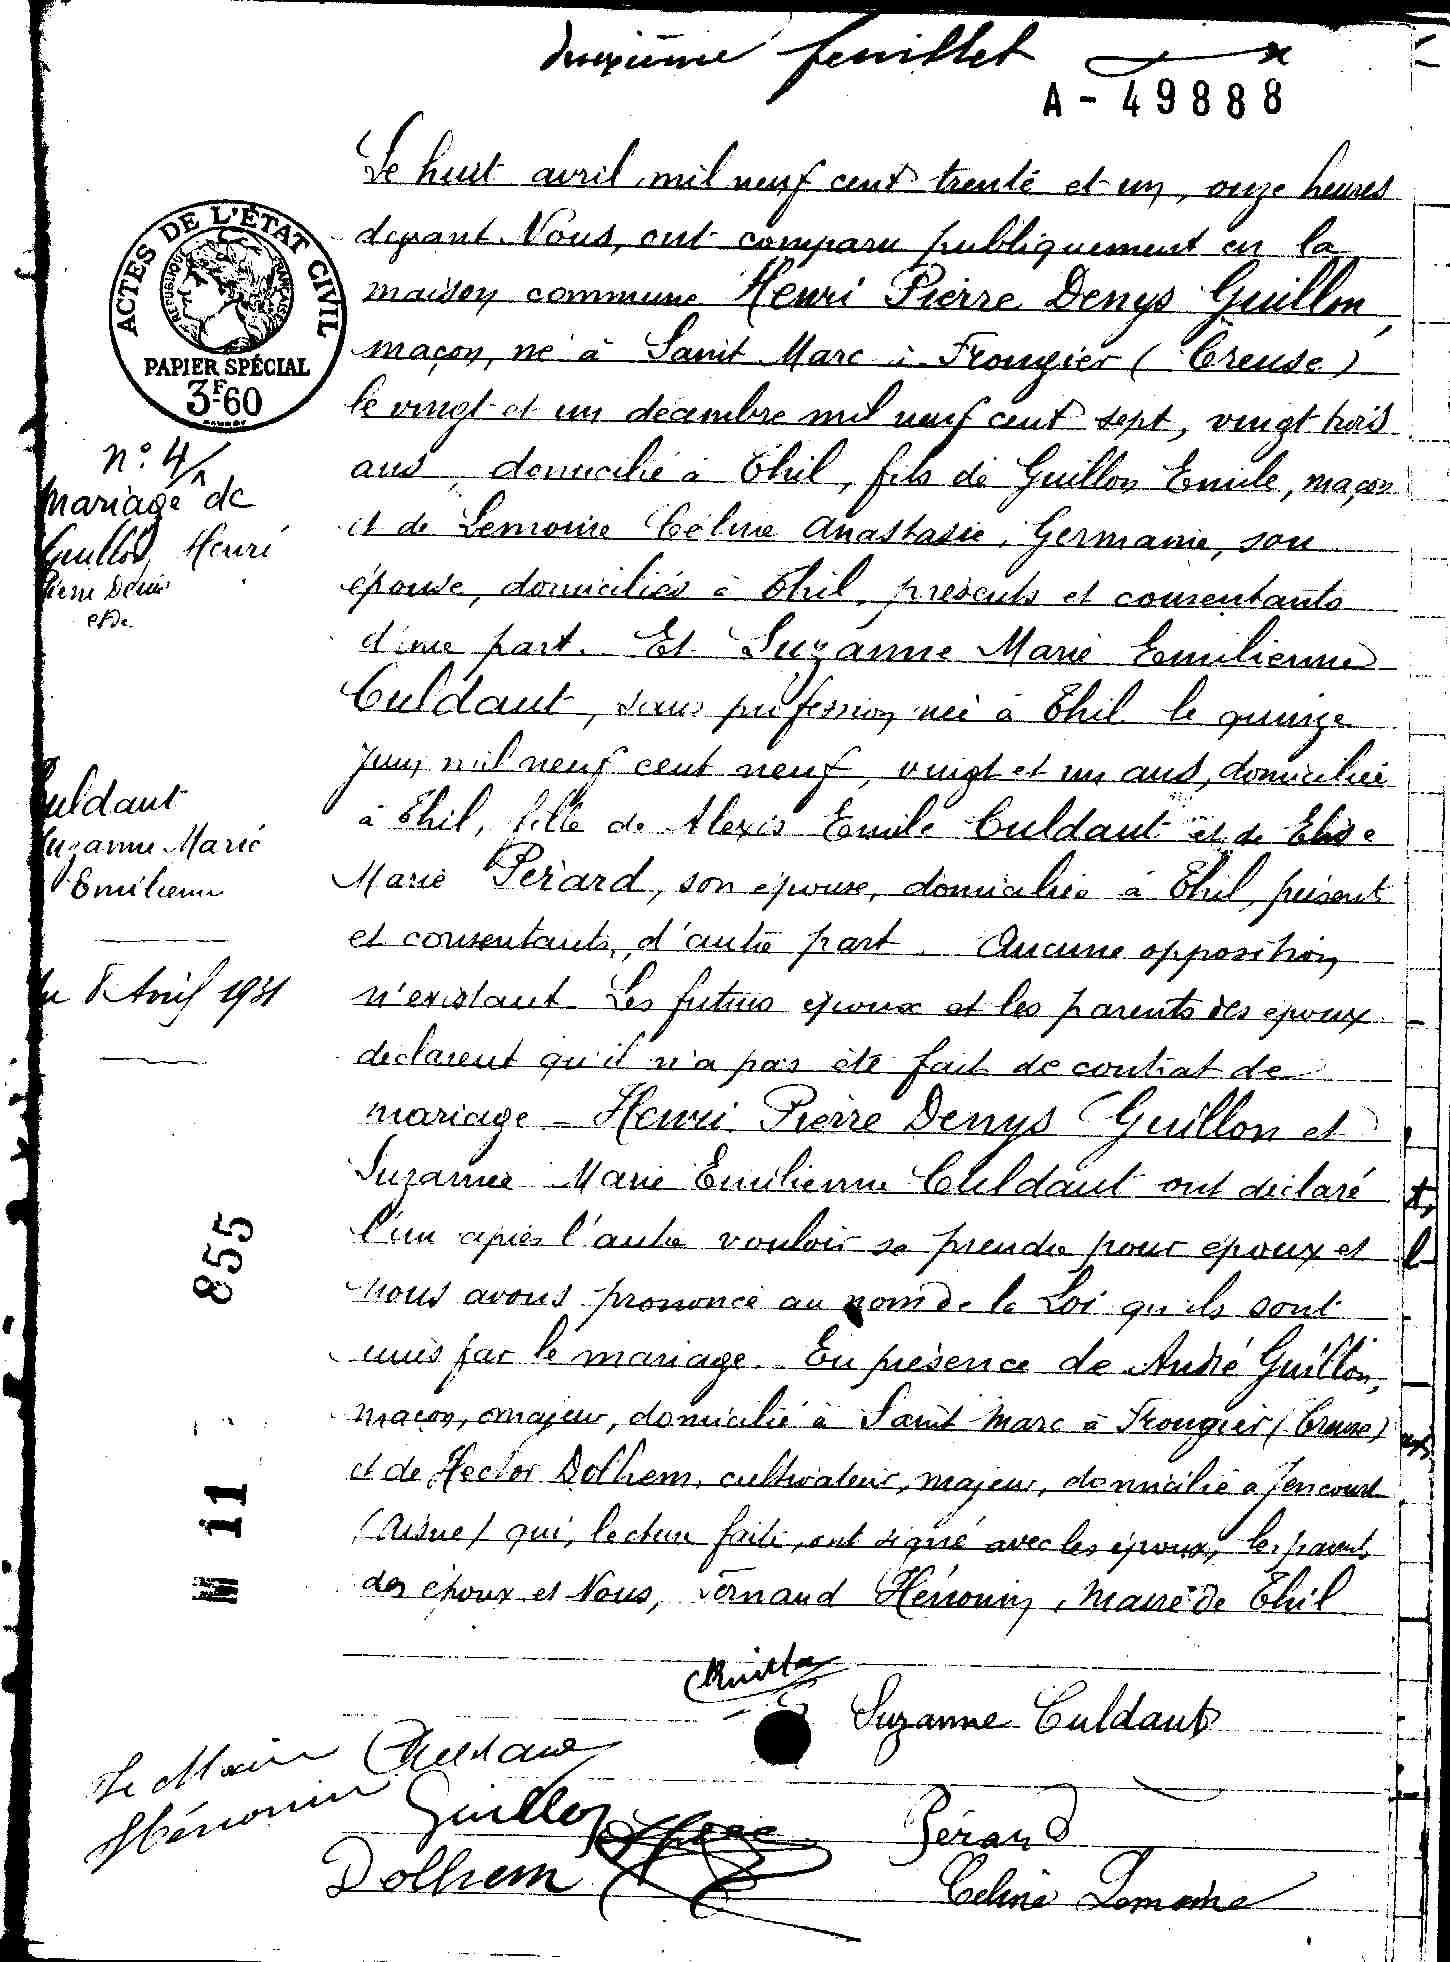 deuxième feuillet
A - 49888
ACTES DE L'ÉTAT CIVIL
RÉPUBLIQUE FRANÇAISE
PAPIER SPÉCIAL
3F.60
n° 4
Mariage de
Guillon Henri
Pierre Denis
et De
Culdaut
Suzanne Marie
Emilienne
du 8 Avril 1931
855
M 11
Le huit avril mil neuf cent trente et un, onze heures
devant Nous, ont comparu publiquement en la
maison commune Henri Pierre Denys Guillon,
maçon, né à Saint Marc à Frongier (Creuse)
le vingt et un décembre mil neuf cent sept, vingt trois
ans, domicilié à Thil, fils de Guillon Emile, maçon
et de Lemoine Céline Anastasie, Germaine, son
épouse, domiciliés à Thil, présents et consentants
d'une part. Et Suzanne Marie Emilienne
Culdaut, sans profession, née à Thil le quinze
Juin mil neuf cent neuf, vingt et un ans, domiciliée
à Thil, fille de Alexis Emile Culdaut et de Elise
Marie Pérard, son épouse, domiciliés à Thil, présents
et consentants, d'autre part. Aucune opposition
n'existant. Les futurs époux et les parents des époux
déclarent qu'il n'a pas été fait de contrat de
mariage - Henri Pierre Denys Guillon et
Suzanne Marie Emilienne Culdaut ont déclaré
l'un après l'autre vouloir se prendre pour époux et
nous avons prononcé au nom de la Loi qu'ils sont
unis par le mariage. En présence de André Guillon,
maçon, majeur, domicilié à Saint Marc à Frongier (Creuse)
et de Hector Dolhem, cultivateur, majeur, domicilié à Jencourt
(Aisne) qui, lecture faite, ont signé avec les époux, les parents
des époux et Nous, Fernand Hénonin, Maire de Thil
Guillon
Suzanne Culdaut
Le Maire
Culdaut
Hénonin
Guillon
Pérard
Dolhem
Celine Lemoine